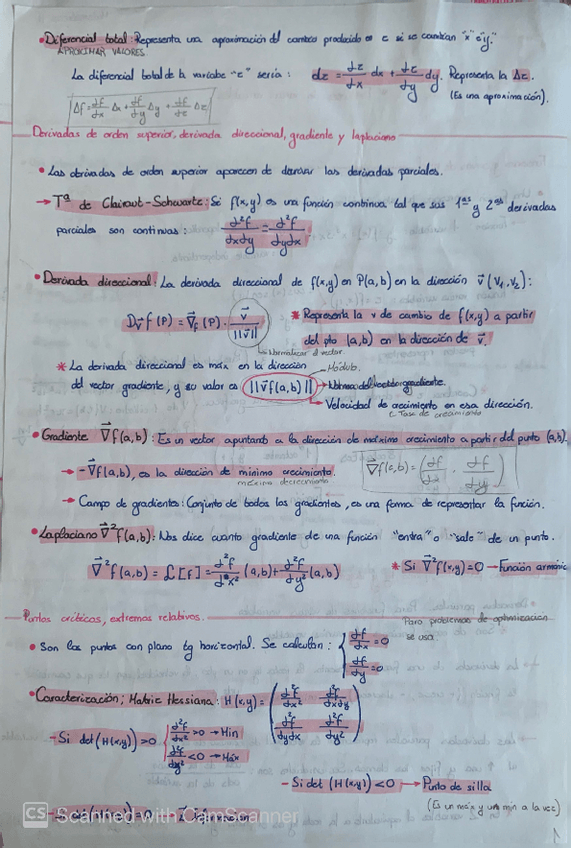 • Diferencial total: Representa una aproximación del cambio producido en z si se cambian "x" o "y".
APROXIMAR VALORES
La diferencial total de la variable "z" sería: dz = dz/dx dx + dz/dy dy. Representa la Δz.
(Es una aproximación).
Δf = df/dx Δx + df/dy Δy + df/dz Δz
Derivadas de orden superior, derivada direccional, gradiente y laplaciano
• Las derivadas de orden superior aparecen de derivar las derivadas parciales.
→ Tª de Clairaut-Schwartz: Si f(x,y) es una función continua tal que sus 1ᵃˢ y 2ᵃˢ derivadas
parciales son continuas: d²f/dxdy = d²f/dydx
• Derivada direccional: La derivada direccional de f(x,y) en P(a,b) en la dirección v⃗ (v₁,v₂):
Dv⃗ f(P) = ∇⃗f(P) · v⃗/||v⃗||
* Representa la v de cambio de f(x,y) a partir
del pto (a,b) en la dirección de v⃗.
Normalizar el vector
* La derivada direccional es máx en la dirección
Módulo.
del vector gradiente, y su valor es ||∇⃗f(a,b)|| → Norma del vector gradiente.
Velocidad de crecimiento en esa dirección.
Tasa de crecimiento
• Gradiente ∇⃗f(a,b): Es un vector apuntando a la dirección de máximo crecimiento a partir del punto (a,b).
→ -∇⃗f(a,b), es la dirección de mínimo crecimiento.
máximo decrecimiento
∇⃗f(a,b) = (df/dx , df/dy)
→ Campo de gradientes: Conjunto de todos los gradientes, es una forma de representar la función.
• Laplaciano ∇⃗²f(a,b): Nos dice cuanto gradiente de una función "entra" o "sale" de un punto.
∇⃗²f(a,b) = L[f] = d²f/dx² (a,b) + d²f/dy² (a,b)
* Si ∇⃗²f(x,y) = 0 → Función armónica
Puntos críticos, extremos relativos.
Para problemas de optimización
se usa
• Son los puntos con plano tg horizontal. Se calculan: { df/dx = 0
df/dy = 0
• Caracterización; Matriz Hessiana: H(x,y) = ( d²f/dx² d²f/dxdy
d²f/dydx d²f/dy² )
- Si det(H(x,y)) > 0 { d²f/dx² > 0 → Mín
d²f/dy² < 0 → Máx
- Si det (H(x,y)) < 0 → Punto de silla
(Es un máx y un mín a la vez)
CS Scanned with CamScanner